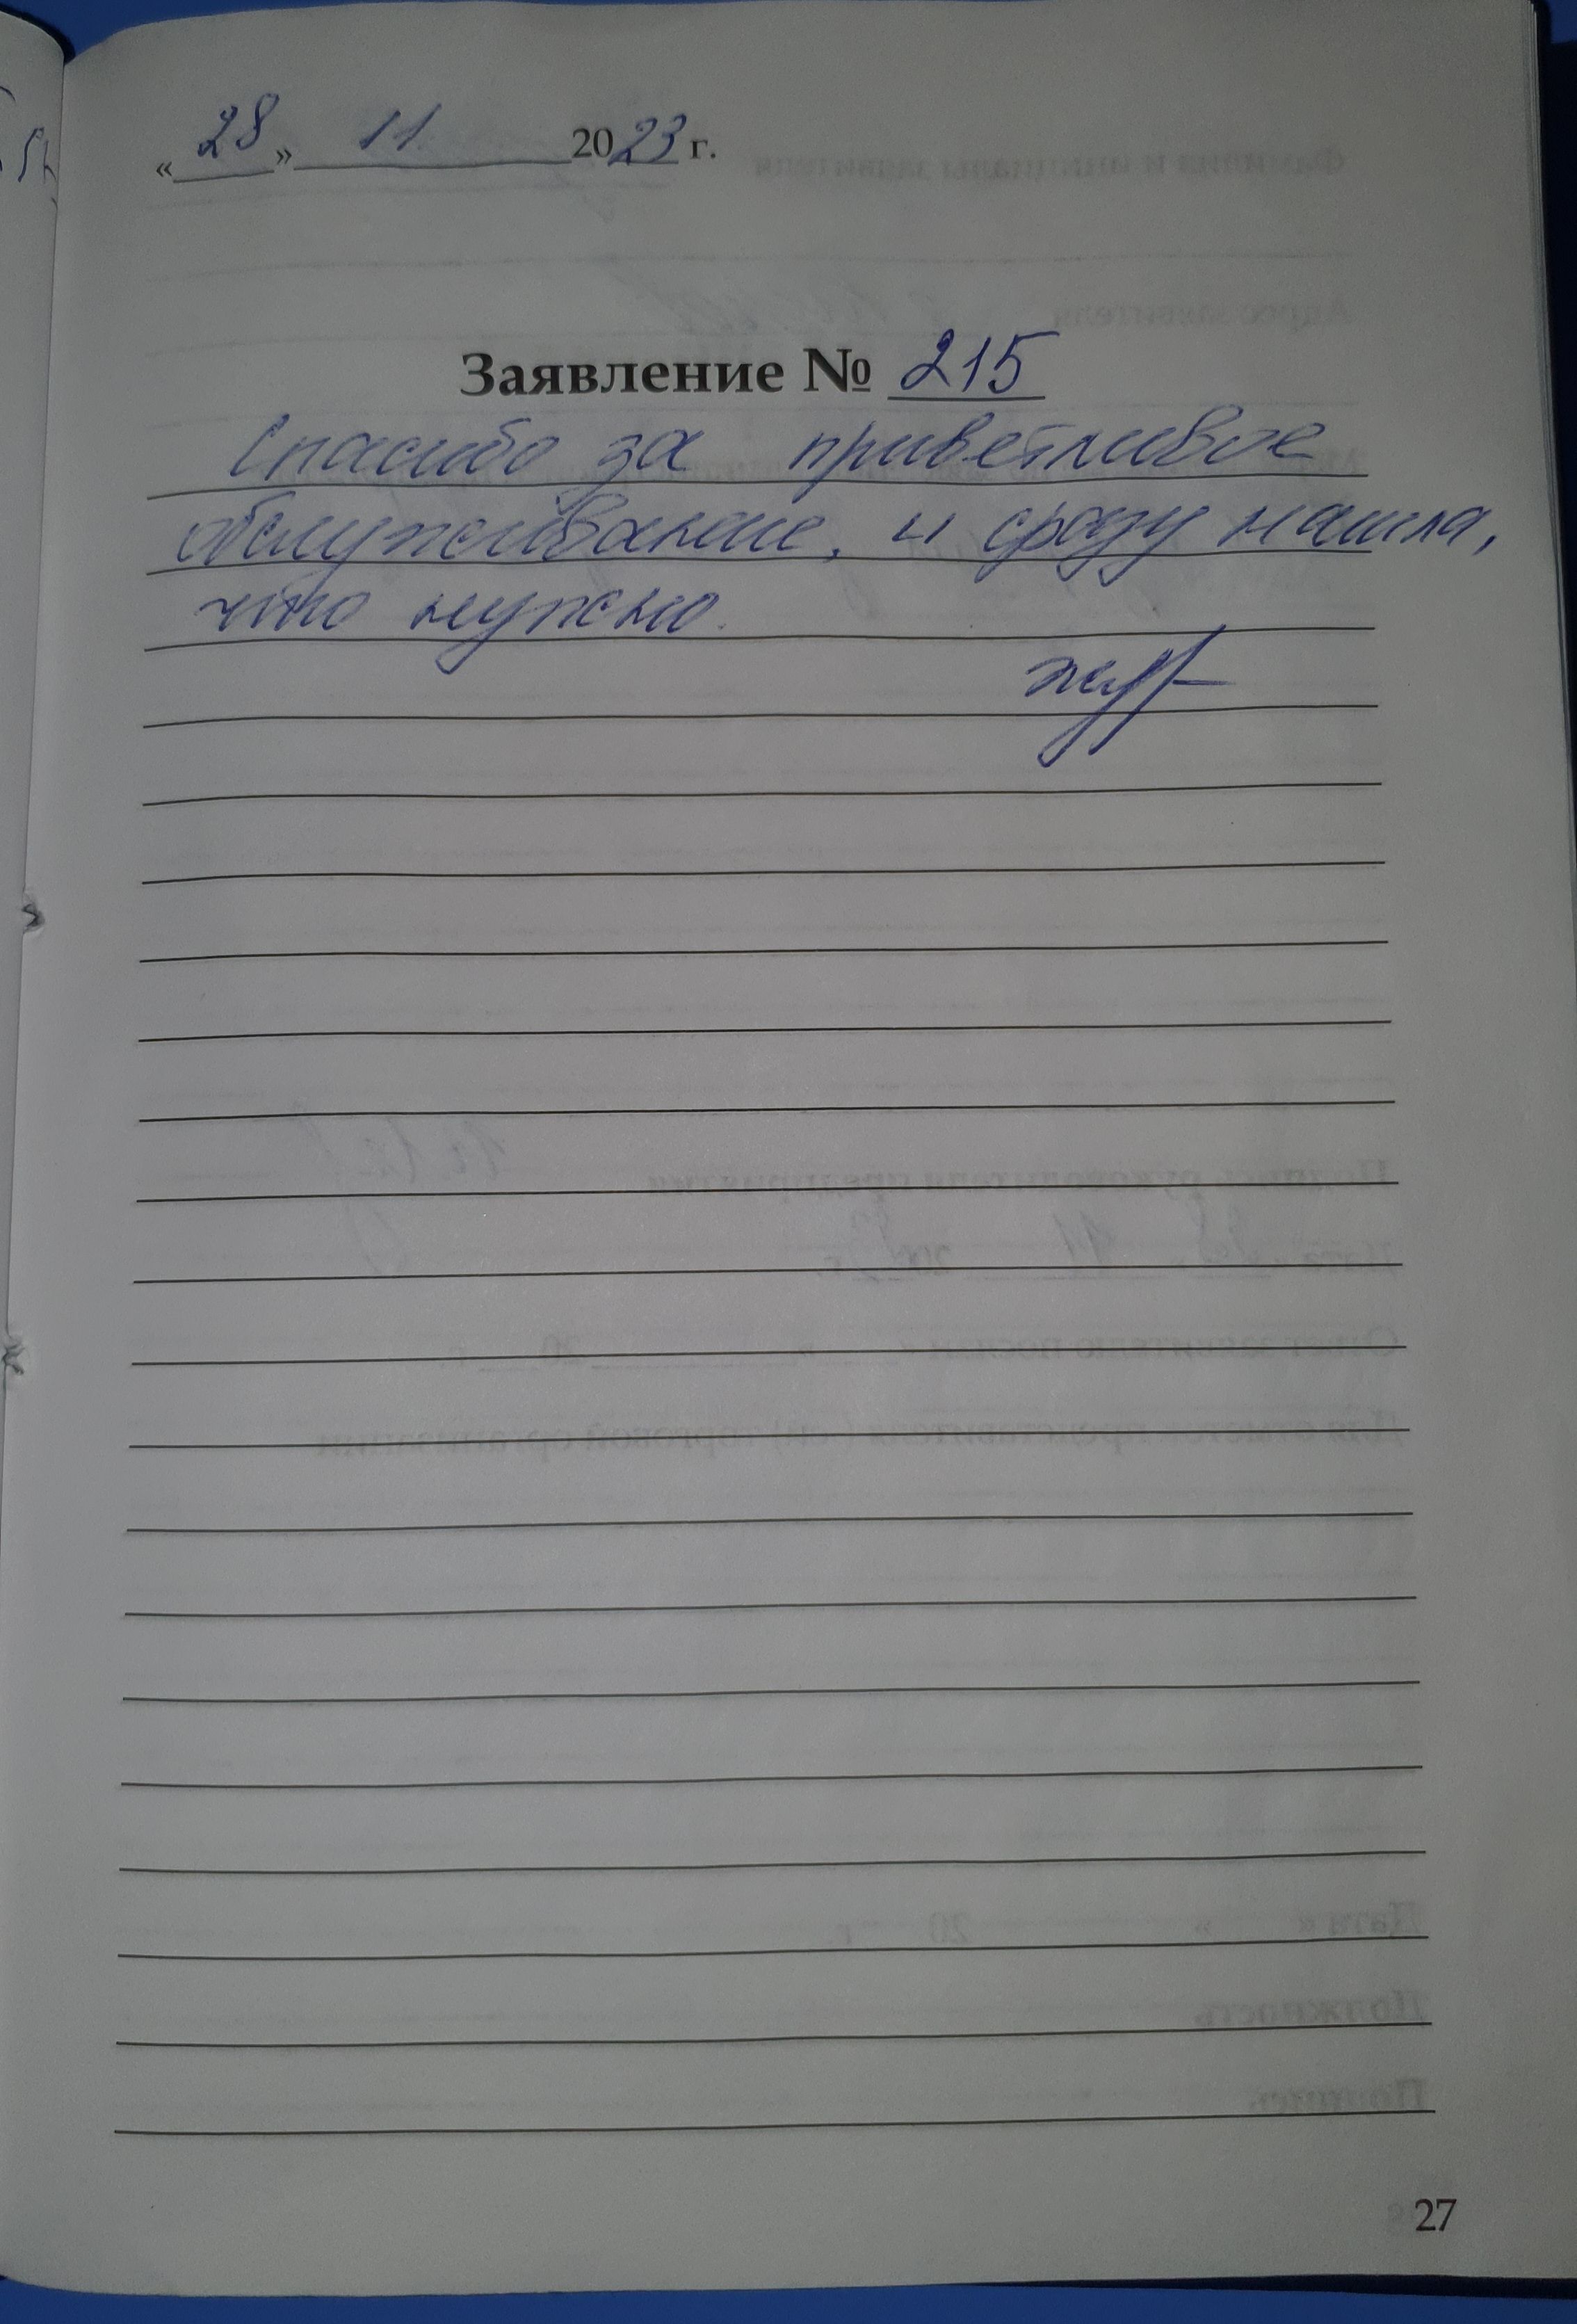 «28» 11. 2023 г.
Заявление № 215
Спасибо за приветливое
обслуживание, и сразу нашла,
что нужно.
27